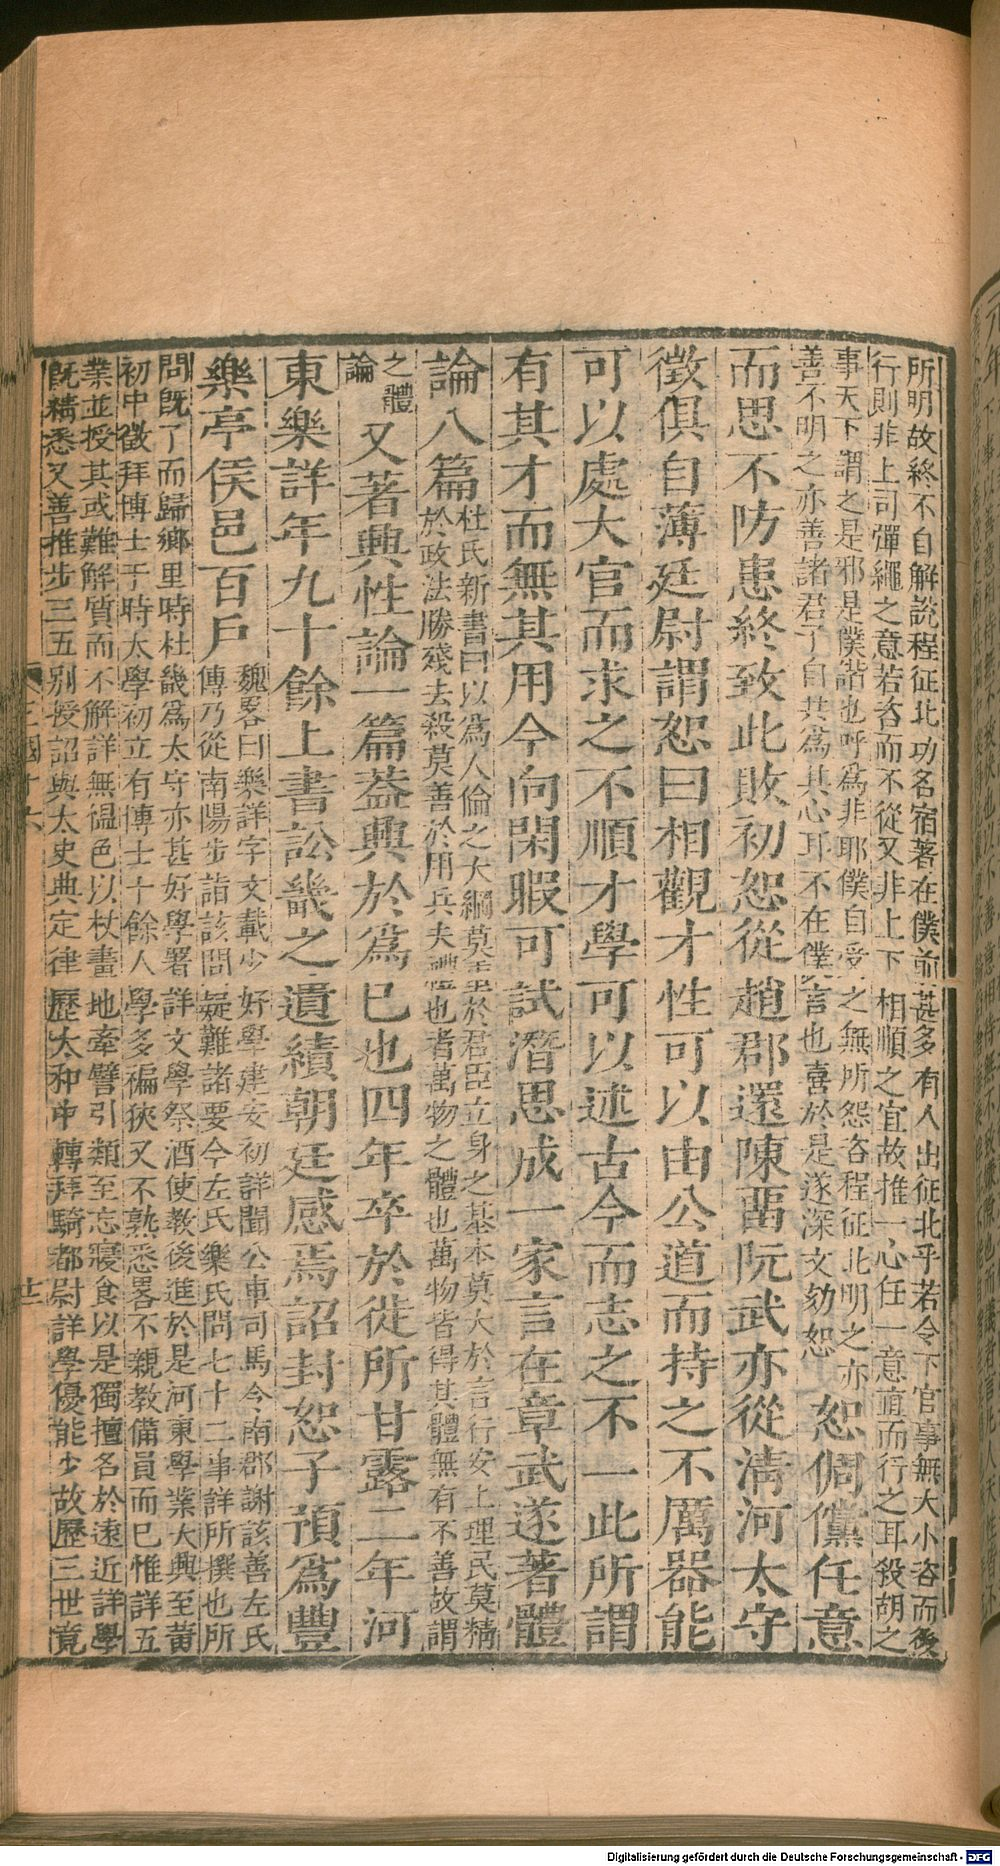 所明故終不自解說程征北功名宿著在僕前甚多有人出征北乎若令下官事無大小咨而後
行則非上司彈繩之意若咨而不從又非上下相順之宜故推一心任一意直而行之耳殺胡之
事天下謂之是邪是僕諧也呼爲非耶僕自受之無所怨咨程征北明之亦
善不明之亦善諸君子自共爲其心耳不在僕言也喜於是遂深文劾恕
恕倜儻任意
而思不防患終致此敗初恕從趙郡還陳畱阮武亦從淸河太守
徵俱自薄廷尉謂恕曰相觀才性可以由公道而持之不厲器能
可以處大官而求之不順才學可以述古今而志之不一此所謂
有其才而無其用今向閑暇可試潛思成一家言在章武遂著體
論八篇
杜氏新書曰以爲人倫之大綱莫重於君臣立身之基本莫大於言行安上理民莫精
於政法勝殘去殺莫善於用兵夫禮也者萬物之體也萬物皆得其體無有不善故謂
之體
論
又著興性論一篇葢興於爲已也四年卒於徙所甘露二年河
東樂詳年九十餘上書訟畿之遺績朝廷感焉詔封恕子預爲豐
樂亭侯邑百戶
魏畧曰樂詳字文載少好學建安初詳聞公車司馬令南郡謝該善左氏
傳乃從南陽步詣該問疑難諸要今左氏樂氏問七十二事詳所撰也所
問旣了而歸鄉里時杜畿爲太守亦甚好學署詳文學祭酒使教後進於是河東學業大興至黃
初中徵拜博士于時太學初立有博士十餘人學多褊狹又不熟悉畧不親教備員而已惟詳五
業並授其或難解質而不解詳無慍色以杖畫地牽譬引類至忘寢食以是獨擅名於遠近詳學
旣精悉又善推步三五別授詔與太史典定律歷太和中轉拜騎都尉詳學優能少故歷三世竟
三國十六
廿一
Digitalisierung gefördert durch die Deutsche Forschungsgemeinschaft - DFG